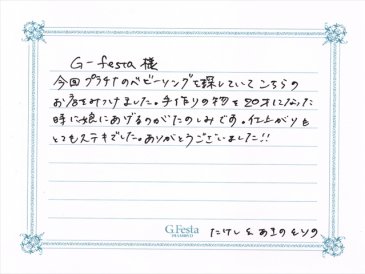 G-festa 様
今回プラチナのベビーリングを探していてこちらの
お店をみつけました。手作りの物を20才になった
時に娘にあげるのがたのしみです。仕上がりも
とてもステキでした。ありがとうございました!!
G.Festa